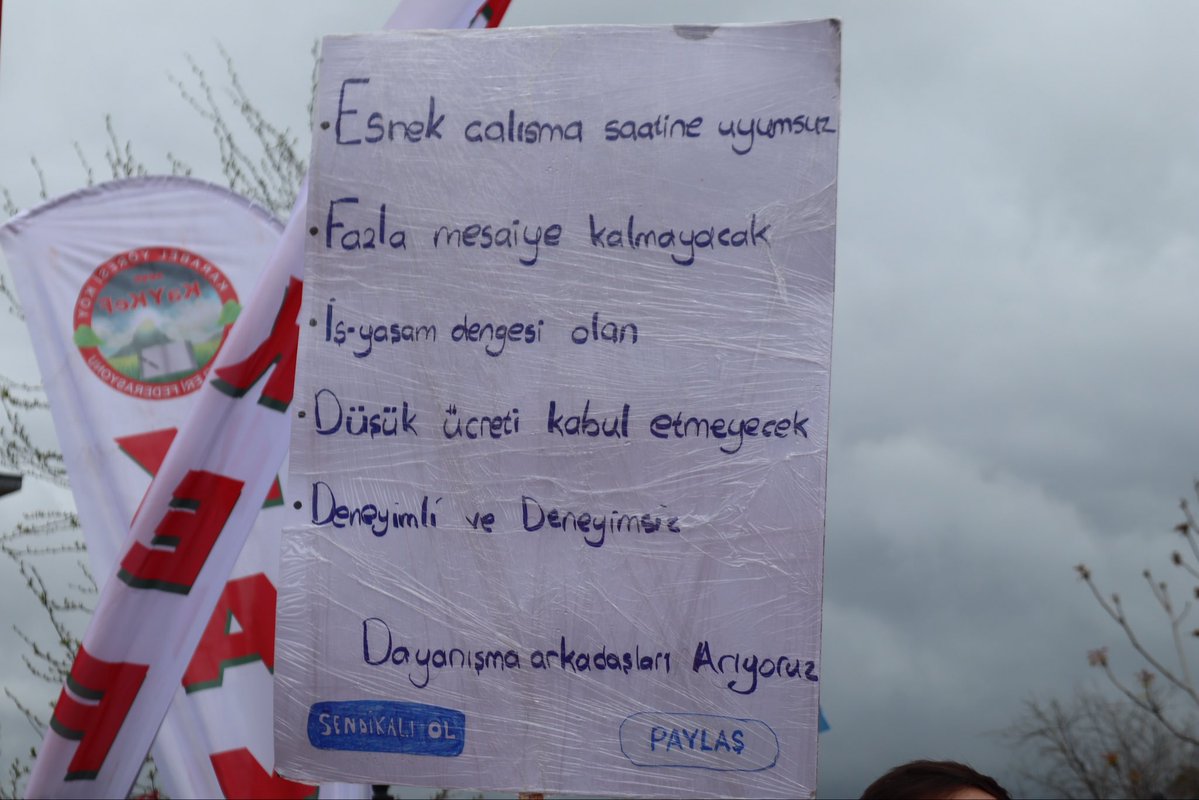 • Esnek calışma saatine uyumsuz
• Fazla mesaiye kalmayacak
• İş-yaşam dengesi olan
• Düşük ücreti kabul etmeyecek
• Deneyimli ve Deneyimsiz
Dayanışma arkadaşları Arıyoruz
SENDİKALI OL
PAYLAŞ
KARABEL YÖRESİ KÖY
KAYKEF
ERİ FEDERASYONU